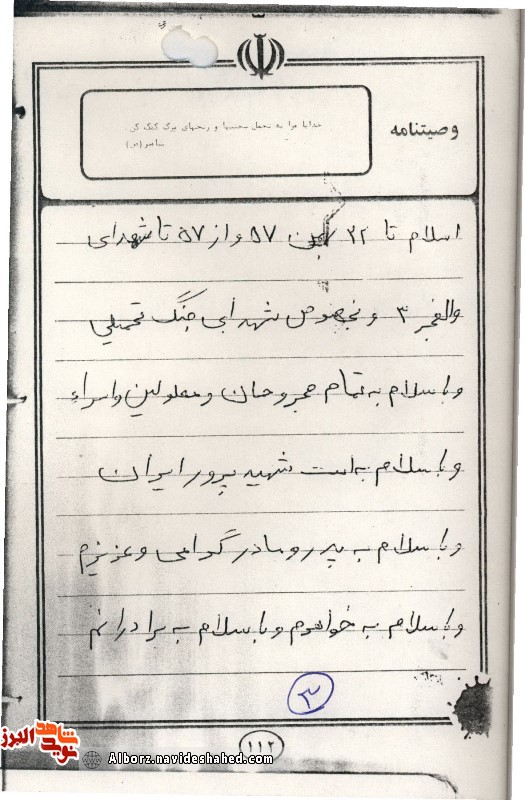 وصیتنامه
خدایا مرا به تحمل سختیها و رنجهای بزرگ کمک کن
اسلام تا ۲۲ بهمن ۵۷ و از ۵۷ تا شهدای
والفجر ۳ و بخصوص شهدای جنگ تحمیلی
و با سلام به تمام مجروحان و معلولین و اسراء
و با سلام به امت شهید پرور ایران
و با سلام به پدر و مادر گرامی و عزیزم
و با سلام به خواهرم و با سلام به برادرانم
۳
۱۱۲
نوید شاهد البرز
Alborz.navideshahed.com